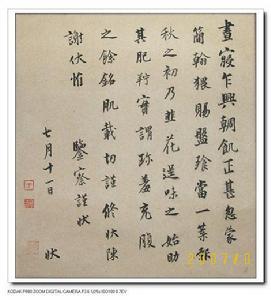 晝寢乍興輖飢正甚忽蒙
簡翰猥賜盤飧當一葉報
秋之初乃韭花逞味之始助
其肥羜實謂珍羞充腹
之餘銘肌載切謹修狀陳
謝伏惟
鑒察謹狀
七月十一日
狀